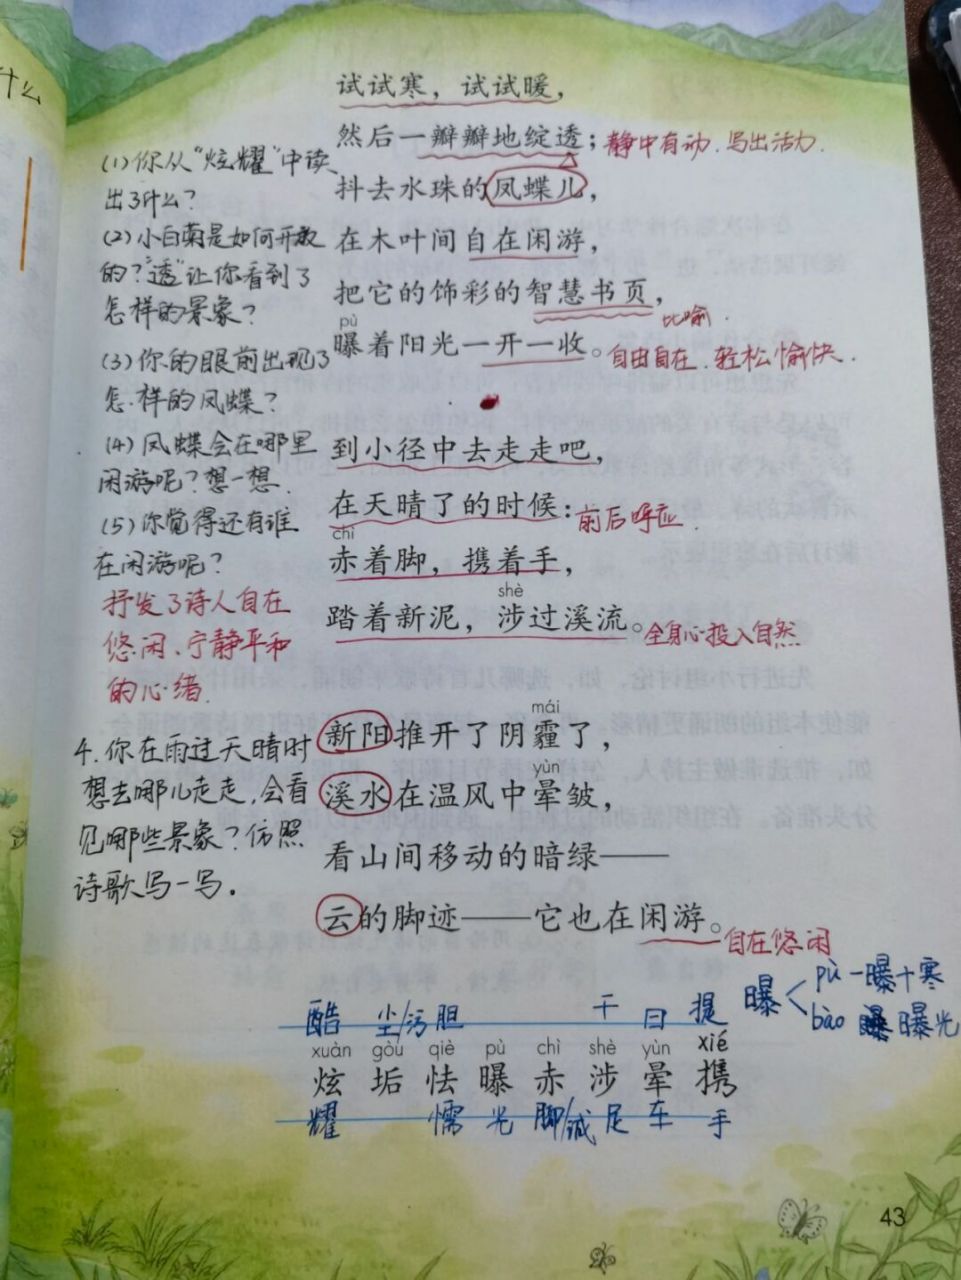 什么
试试寒，试试暖，
然后一瓣瓣地绽透；
静中有动、写出活力.
抖去水珠的凤蝶儿，
在木叶间自在闲游，
把它的饰彩的智慧书页，
比喻.
pù
曝着阳光一开一收。
自由自在、轻松愉快.
到小径中去走走吧，
在天晴了的时候：
前后呼应.
chì
赤着脚，携着手，
shè
踏着新泥，涉过溪流。
全身心投入自然
mái
新阳推开了阴霾了，
yùn
溪水在温风中晕皱，
看山间移动的暗绿——
云的脚迹——它也在闲游。
自在悠闲
(1)你从“炫耀”中读
出了什么？
(2)小白菊是如何开放
的？“透”让你看到了
怎样的景象？
(3)你的眼前出现了
怎样的凤蝶？
(4)凤蝶会在哪里
闲游呢？想一想.
(5)你觉得还有谁
在闲游呢？
抒发了诗人自在
悠闲、宁静平和
的心绪.
4.你在雨过天晴时
想去哪儿走走，会看
见哪些景象？仿照
诗歌写一写。
曝 pù 一曝十寒
bào 曝光
酷 尘/污 胆 干 日 提
xuàn gòu qiè pù chì shè yùn xié
炫 垢 怯 曝 赤 涉 晕 携
耀 懦 光 脚/诚 足 车 手
43